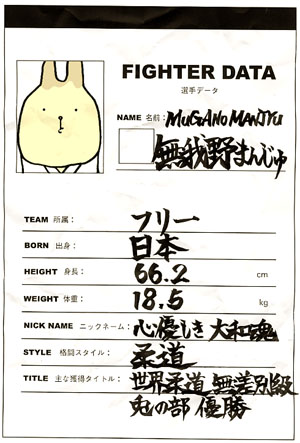 FIGHTER DATA
選手データ
NAME 名前: MUGANO MANJYU
無我野まんじゅ
TEAM 所属: フリー
BORN 出身: 日本
HEIGHT 身長: 66.2 cm
WEIGHT 体重: 18.5 kg
NICK NAME ニックネーム: 心優しき 大和魂
STYLE 格闘スタイル: 柔道
TITLE 主な獲得タイトル: 世界柔道 無差別級
兎の部 優勝